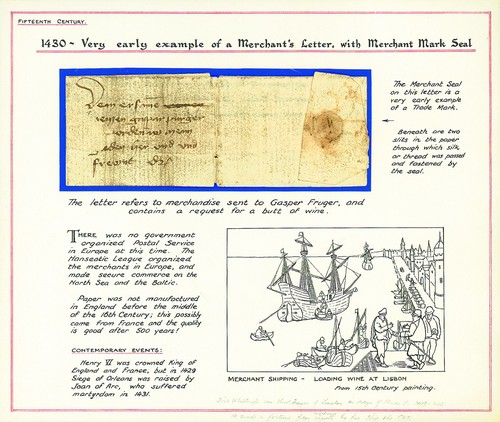 FIFTEENTH CENTURY.
1430 ~ Very early example of a Merchant's Letter, with Merchant Mark Seal
The Merchant Seal
on this letter is a
very early example
of a Trade Mark.
Beneath are two
slits in the paper
through which silk
or thread was passed
and fastened by
the seal.
The letter refers to merchandise sent to Gasper Fruger, and
contains a request for a butt of wine.
THERE was no government
organized Postal Service
in Europe at this time. The
Hanseatic League organized
the merchants in Europe, and
made secure commerce on the
North Sea and the Baltic.
Paper was not manufactured
in England before the middle
of the 16th Century; this possibly
came from France and the quality
is good after 500 years!
CONTEMPORARY EVENTS:
Henry VI was crowned King of
England and France, but in 1429
Siege of Orleans was raised by
Joan of Arc, who suffered
martyrdom in 1431.
MERCHANT SHIPPING - LOADING WINE AT LISBON
From 15th Century painting.